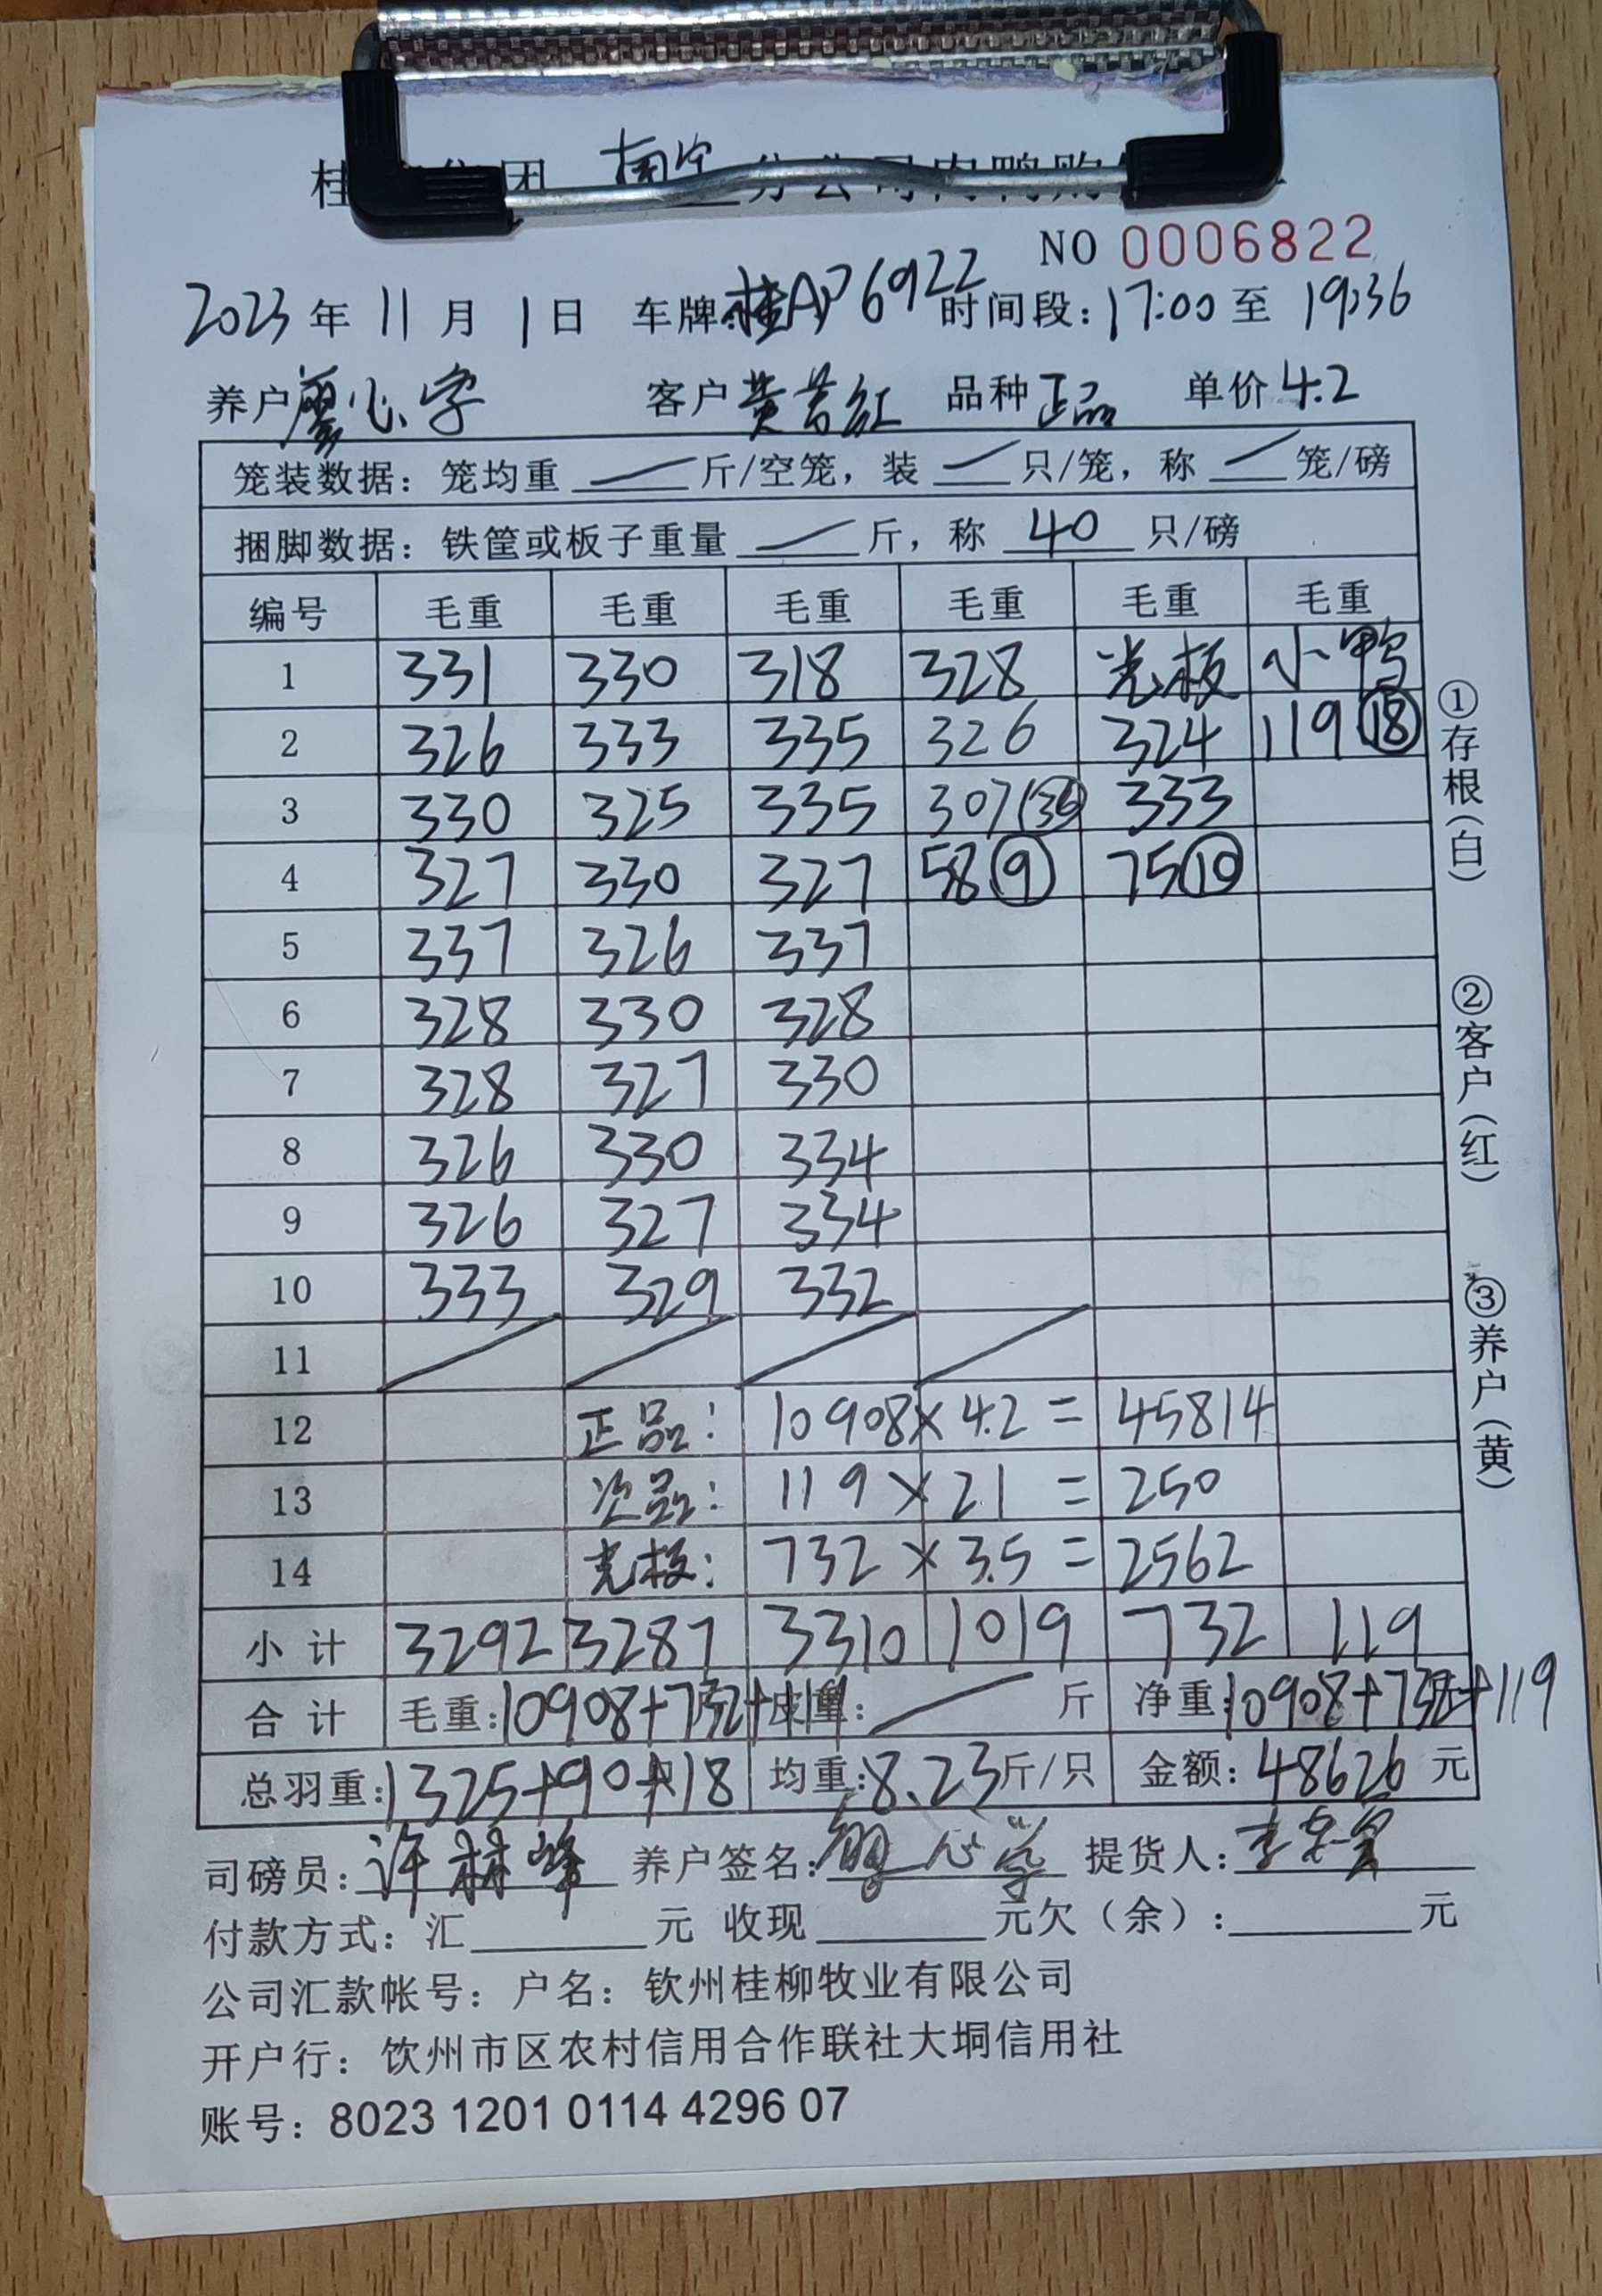 桂 集团 南宁 分公司肉鸭购
NO 0006822
2023 年 11 月 1 日 车牌:桂AP6922 时间段:17:00 至 19:36
养户 廖心字 客户 黄 红 品种 正品 单价 4.2
笼装数据:笼均重 / 斤/空笼,装 / 只/笼,称 / 笼/磅
捆脚数据:铁筐或板子重量 / 斤,称 40 只/磅
编号 毛重 毛重 毛重 毛重 毛重 毛重
1 331 330 318 328 光板 小鸭
2 326 333 335 326 324 119 ⑱
3 330 325 335 307 ㊱ 333
4 327 330 327 58 ⑨ 75 ⑩
5 337 326 337
6 328 330 328
7 328 327 330
8 326 330 334
9 326 327 334
10 333 329 332
11 / / / /
12 正品: 10908 × 4.2 = 45814
13 次品: 119 × 21 = 250
14 光板: 732 × 3.5 = 2562
小计 3292 3287 3310 1019 732 119
合计 毛重:10908+732+119 皮重: / 斤 净重:10908+732+119
总羽重:1325+90+18 均重:8.23斤/只 金额:48626 元
司磅员:许林峰 养户签名:廖心 提货人:李
付款方式:汇 元 收现 元欠(余): 元
公司汇款帐号:户名:钦州桂柳牧业有限公司
开户行:饮州市区农村信用合作联社大垌信用社
账号:8023 1201 0114 4296 07
①存根(白)
②客户(红)
③养户(黄)